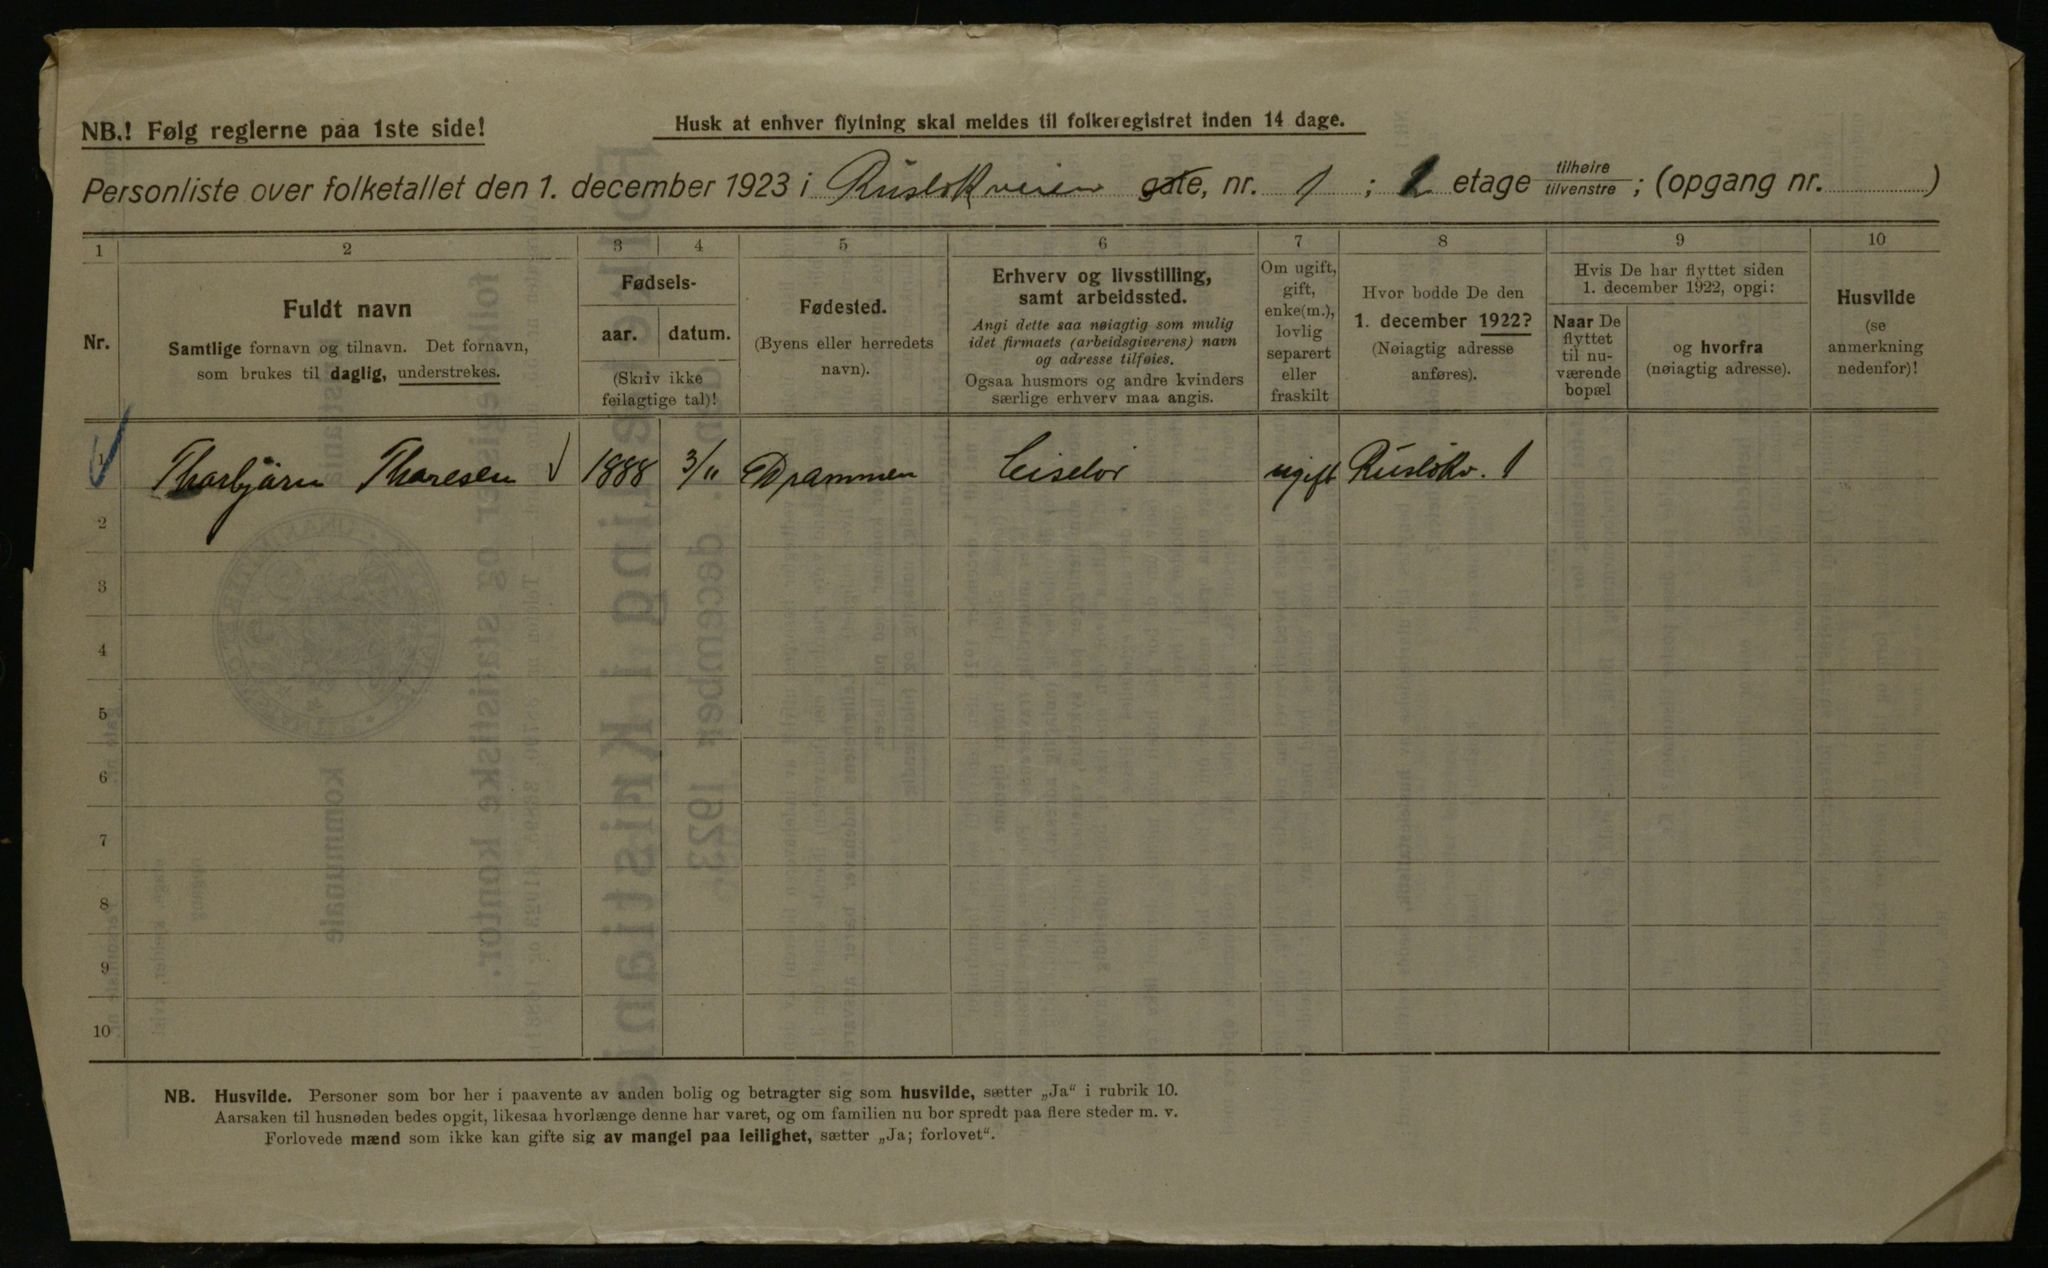 NB.! Følg reglerne paa 1ste side!
Husk at enhver flytning skal meldes til folkeregistret inden 14 dage.
Personliste over folketallet den 1. december 1923 i Rusløkveien gate, nr. 1 ; 2 etage tilhøire tilvenstre ; (opgang nr. )
1 2 3 4 5 6 7 8 9 10
Nr.
Fuldt navn
Samtlige fornavn og tilnavn. Det fornavn,
som brukes til daglig, understrekes.
Fødsels-
aar. datum.
(Skriv ikke
feilagtige tal)!
Fødested.
(Byens eller herredets
navn).
Erhverv og livsstilling,
samt arbeidssted.
Angi dette saa nøiagtig som mulig
idet firmaets (arbeidsgiverens) navn
og adresse tilføies.
Ogsaa husmors og andre kvinders
særlige erhverv maa angis.
Om ugift,
gift,
enke(m.),
lovlig
separert
eller
fraskilt
Hvor bodde De den
1. december 1922?
(Nøiagtig adresse
anføres).
Hvis De har flyttet siden
1. december 1922, opgi:
Naar De
flyttet
til nu-
værende
bopæl
og hvorfra
(nøiagtig adresse).
Husvilde
(se
anmerkning
nedenfor)!
1 Thorbjørn Thoresen 1888 3/11 Drammen Ciselør ugift Rusløkv. 1
2
3
4
5
6
7
8
9
10
NB. Husvilde. Personer som bor her i paavente av anden bolig og betragter sig som husvilde, sætter „Ja“ i rubrik 10.
Aarsaken til husnøden bedes opgit, likesaa hvorlænge denne har varet, og om familien nu bor spredt paa flere steder m. v.
Forlovede mænd som ikke kan gifte sig av mangel paa leilighet, sætter „Ja; forlovet“.